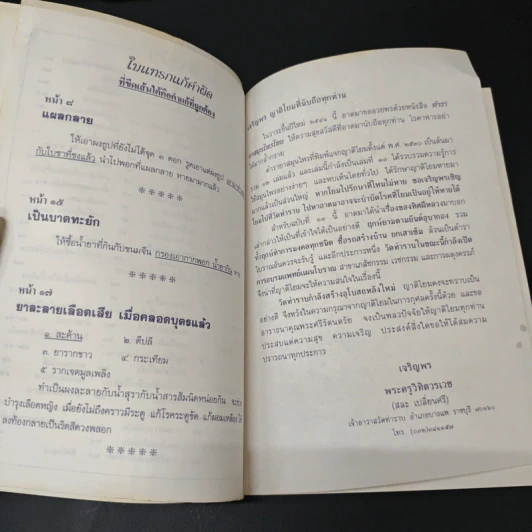 ใบแทรกแก้คำผิด
ที่ขีดเส้นใต้คือคำแก้ที่ถูกต้อง
หน้า ๘
แผลกลาย
ให้เอาผงธูปที่ยังไม่ได้จุด ๓ ดอก
กับใบชาที่ชงแล้ว นำไปพอกที่แผลกลาย หายมามากแล้ว
*****
หน้า ๑๕
เป็นบาดทะยัก
ให้ซื้อน้ำยาที่กินกับขนมจีน
*****
หน้า ๑๗
ยาละลายเลือดเสีย เมื่อคลอดบุตรแล้ว
๑. สะค้าน ๒. ดีปลี
๓. ยารากขาว ๔. กระเทียม
๕. รากเจตมูลเพลิง
ทำเป็นผงละลายกับน้ำสุรากับน้ำสารส้มนิดหน่อยกิน
บำรุงเลือดหญิง เมื่อยังไม่ถึงคราวมีระดู แก้โรคระดูขัด แก้ผอมเหลือง
ลงท้องกลายเป็นริดสีดวงพลอก
*****
เจริญพร ญาติโยมที่นับถือทุกท่าน
ในวาระขึ้นปีใหม่ ๒๕๔๑ นี้ อาตมาขออวยพรด้วยหนังสือ ตำรา
ยาสมุนไพรไทย ให้ความสุขสวัสดีที่อาตมานับถือทุกท่าน โรคาพารอย่า
ได้มากล้ำกราย
ตำรายาสมุนไพรที่พิมพ์แจกญาติโยมตั้งแต่ พ.ศ. ๒๕๓๑ เป็นต้นมา
รวม ๑๑ เล่มแล้ว และเล่มนี้กำลังเป็นเล่มที่ ๑๑ ได้รวบรวมความรู้การ
ใช้สมุนไพรอย่างง่ายๆ และพบเห็นโดยทั่วไป ได้รักษาญาติโยมหายมา
มากแล้วเป็นส่วนใหญ่ หากโยมไปรักษาที่ไหนไม่หาย ขอเจริญพรเชิญ
โยมไปที่วัดท่าราบ ไปหาอาตมาอาจจะบำบัดโรคที่โยมเป็นอยู่ให้หายได้
สำหรับฉบับที่ ๑๑ นี้ อาตมาได้นำเรื่องของทิศผีหลวงมาบอก
เล่ากล่าวให้เป็นที่เข้าใจได้เป็นอย่างดี ฤกษ์งามตามยันต์อุบาทอง รวม
ทั้งฤกษ์พิการมงคลทุกชนิด ซื้อรถสร้างบ้าน ยกเสาเข็ม ล้วนเป็นตำรา
โบราณอันควรจะรับรู้ และอีกประการหนึ่ง วัดท่าราบในขณะนี้กำลังเปิด
การอบรมแพทย์แผนโบราณ สาขาเภสัชกรรม เวชกรรม และการผดุงครรภ์
จึงนำที่ญาติโยมจะให้ความสนใจในเรื่องนี้
วัดท่าราบกำลังสร้างอุโบสถหลังใหม่ ญาติโยมคงจะทราบเป็น
อย่างดี จึงหวังในความกรุณาจากญาติโยมในการกุศลครั้งนี้ด้วย และขอ
อาราธนาคุณพระศรีรัตนตรัย จงเป็นพลวปัจจัยให้ญาติโยมทุกท่าน
ประสบแต่ความสุข ความเจริญ ประสงค์สิ่งใดขอให้ได้สมความ
ปรารถนาทุกประการ
เจริญพร
พระครูวิทิตารเวช
(สละ เปลี่ยนศรี)
เจ้าอาวาสวัดท่าราบ อำเภอบางแพ ราชบุรี ๗๐๑๖๐
โทร. (๐๓๒)